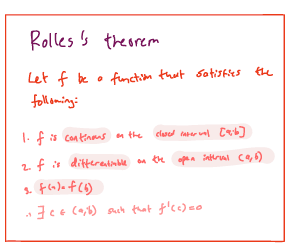 Rolles's theorem
Let f be a function that satisfies the
following:
1. f is continous on the closed interval [a,b]
2. f is differentiable on the open interval (a,b)
3. f(a)= f(b)
∴ ∃ c ∈ (a,b) such that f'(c)=0